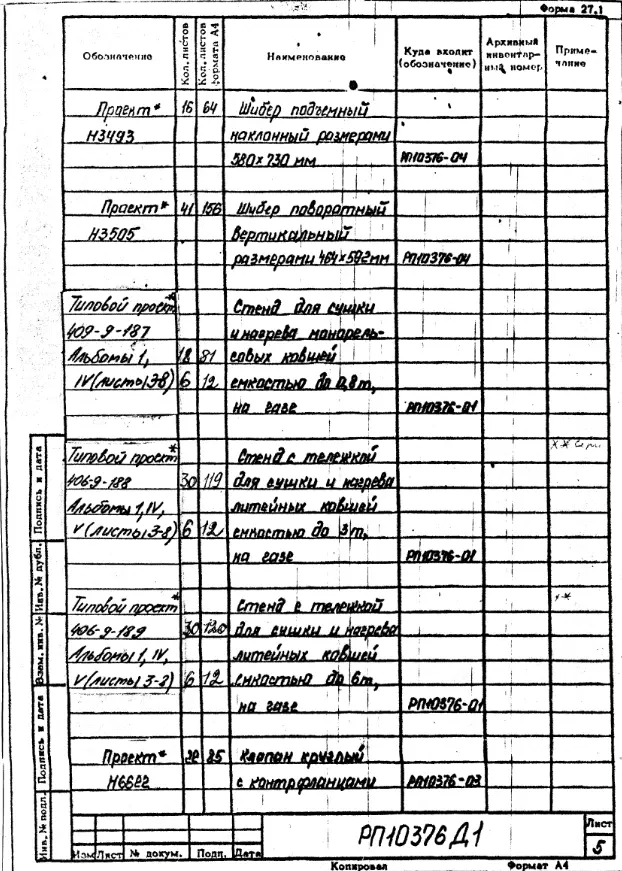 Форма 27.1
Обозначение Кол. листов Кол. листов формата А4 Наименование Куда входит (обозначение) Архивный инвентарный номер Примечание
Проект* 16 64 Шибер подъемный
Н3493 наклонный размерами
580×730 мм РП10376-04
Проект* 41 156 Шибер поворотный
Н3505 вертикальный
размерами 464×592мм РП10376-04
Типовой проект* Стенд для сушки
409-9-187 и нагрева монорель-
Альбомы 1, 18 81 совых ковшей
IV (листы 3-8) 6 12 емкостью до 0,8т,
на газе РП10376-01
Типовой проект* Стенд с тележкой
406-9-188 30 119 для сушки и нагрева
Альбомы 1, IV, литейных ковшей
V (листы 3-8) 6 12 емкостью до 3т,
на газе РП10376-01
Типовой проект* Стенд с тележкой
406-9-189 30 120 для сушки и нагрева
Альбомы 1, IV, литейных ковшей
V (листы 3-8) 6 12 емкостью до 6т,
на газе РП10376-01
Проект* 25 Клапан круглый
Н6622 с контрфланцами РП10376-03
Подпись и дата
Инв. № дубл.
Взам. инв. №
Подпись и дата
Инв. № подл.
Изм Лист № докум. Подп. Дата
РП10376Д1
Лист
5
Копировал Формат А4